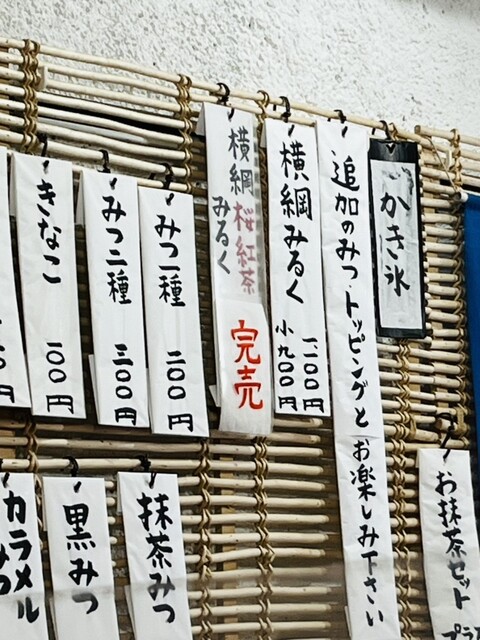 かき氷
追加のみつ、トッピングと お楽しみ下さい
横綱みるく
一二〇〇円
小九〇〇円
横綱桜紅茶みるく
完売
みつ一種 二〇〇円
みつ二種 三〇〇円
きなこ 一〇〇円
お抹茶セット
抹茶みつ
黒みつ
カラメルみつ